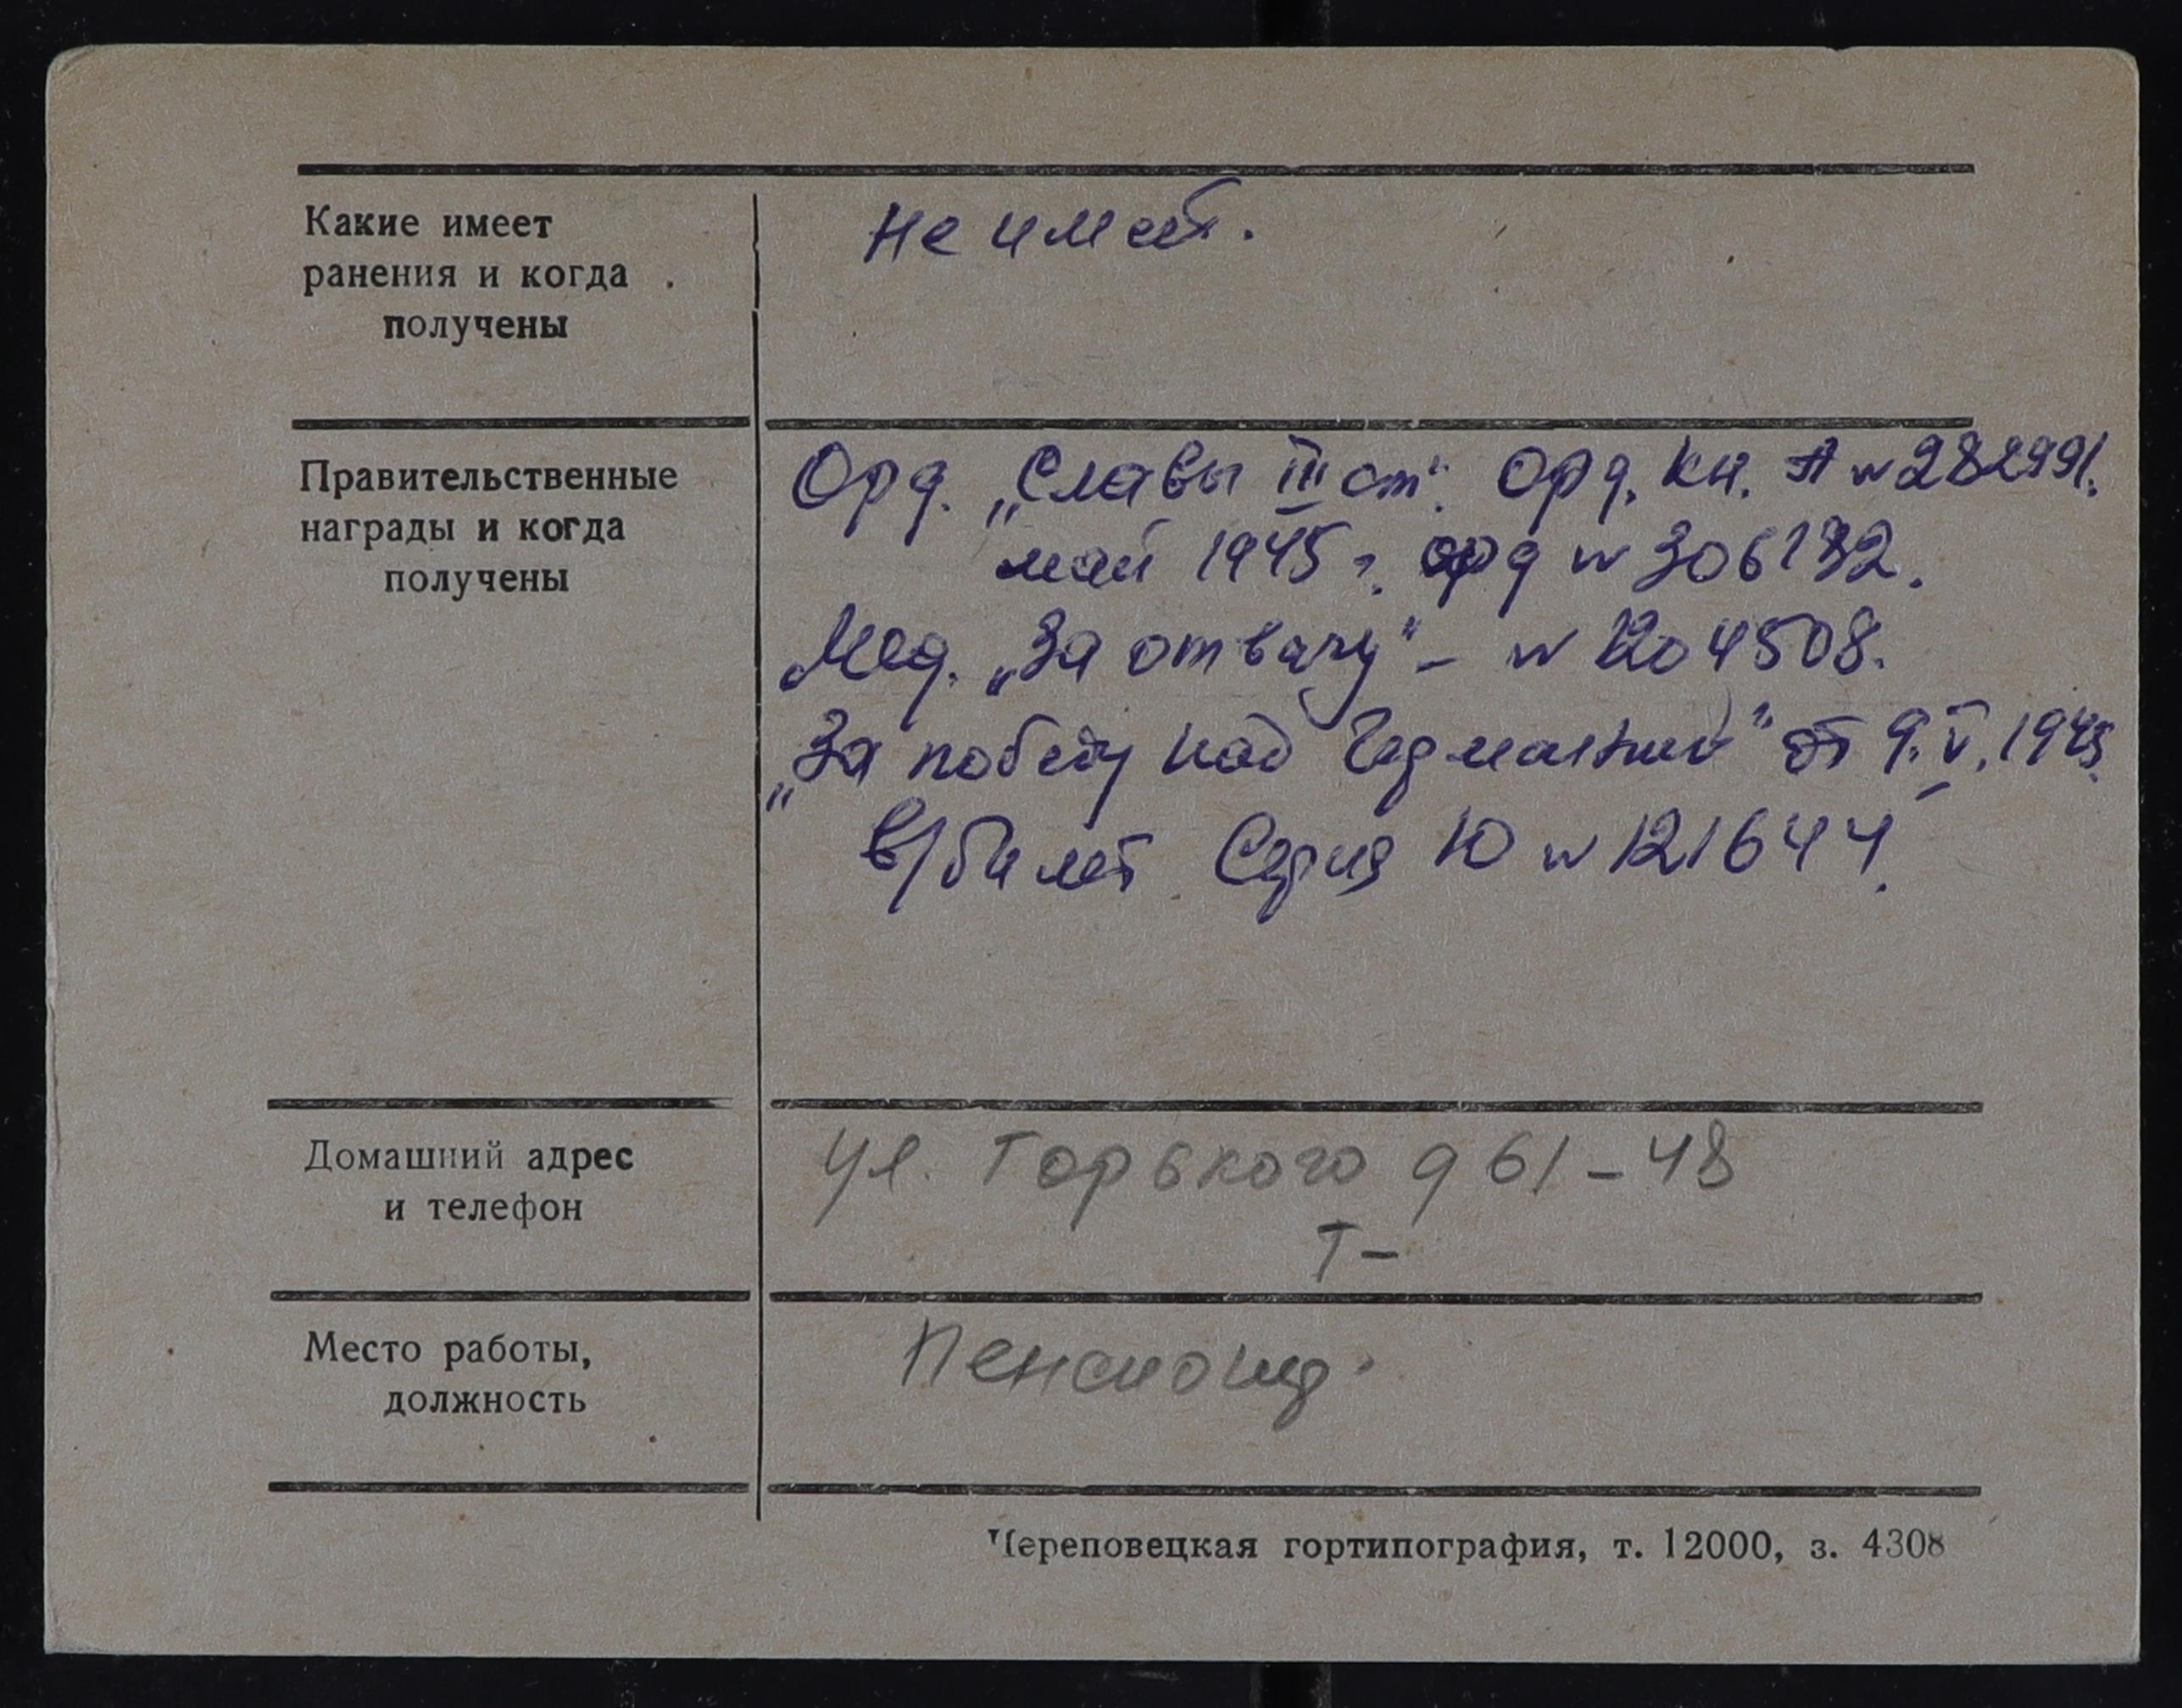 Какие имеет
ранения и когда
получены
не имеет.
Правительственные
награды и когда
получены
Орд. „Славы III ст“. Орд. кн. А № 282991.
май 1945 г. орд № 306192.
Мед. „За отвагу“ – № 1204508.
„За победу над Германией“ от 9.V.1945
в/билет Серия Ю № 121644.
Домашний адрес
и телефон
ул. Горького д 61–48
Т–
Место работы,
должность
Пенсионер.
Череповецкая гортипография, т. 12000, з. 4308